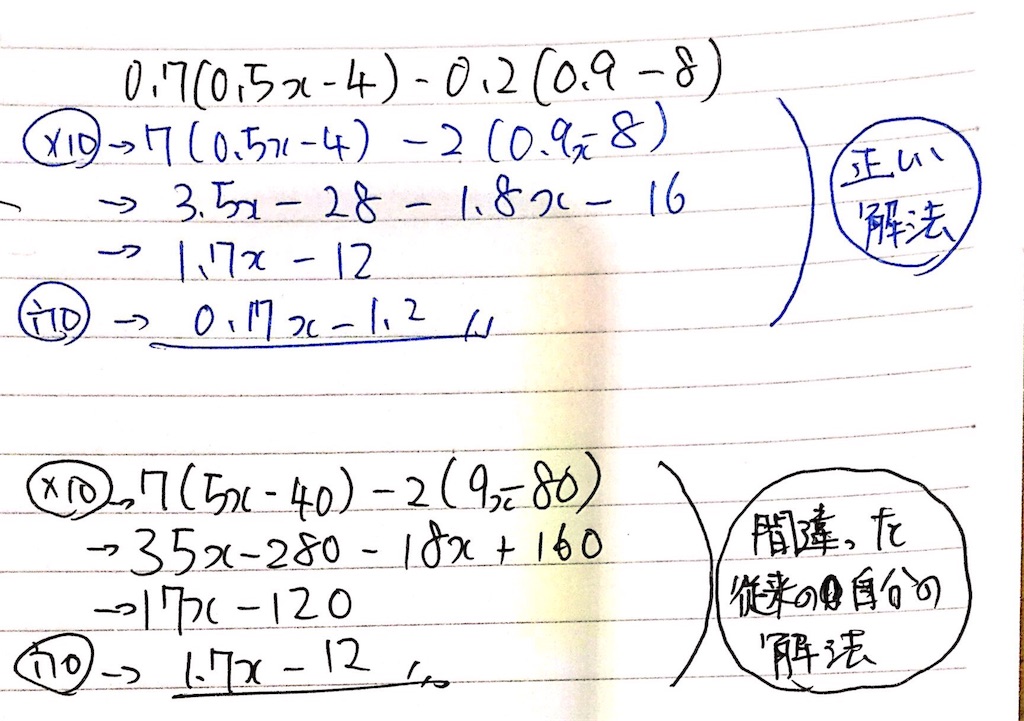 0.7(0.5x-4) - 0.2(0.9-8)
×10 → 7(0.5x-4) - 2(0.9x-8)
→ 3.5x - 28 - 1.8x - 16
→ 1.7x - 12
÷10 → 0.17x - 1.2
正しい
解法
×10 → 7(5x-40) - 2(9x-80)
→ 35x - 280 - 18x + 160
→ 17x - 120
÷10 → 1.7x - 12
間違った
従来の自分の
解法